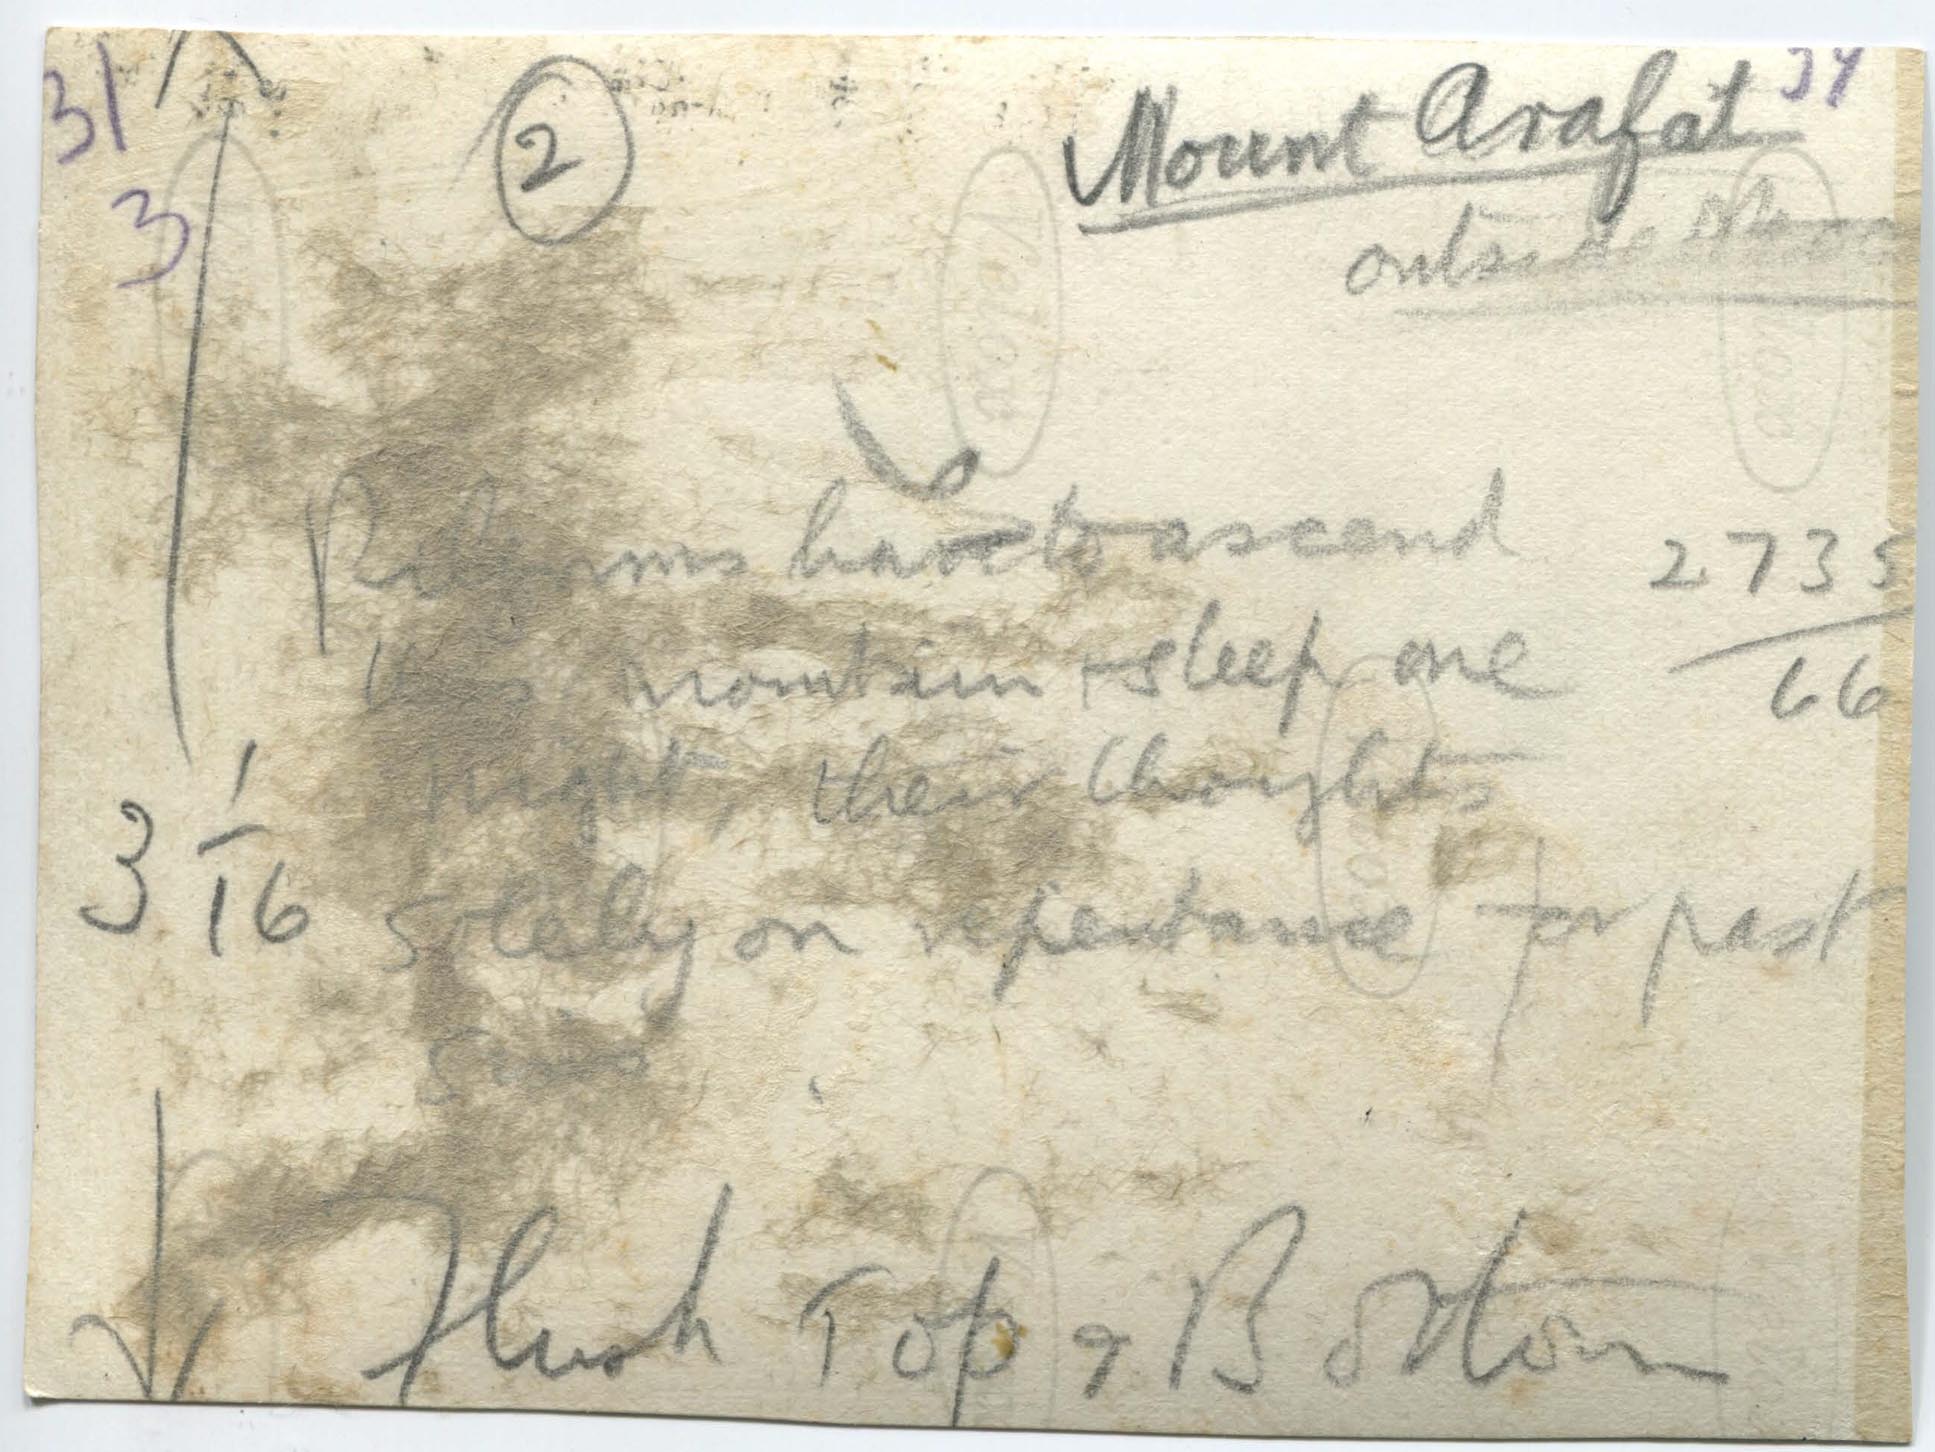 31
34
3
2
Mount Arafat
outside
Pilgrims have to ascend
2735
66
this mountain + sleep one
night, their thoughts
3 1/16
solely on repentance for past
sins
Flush Top & Bottom
Velox
Velox